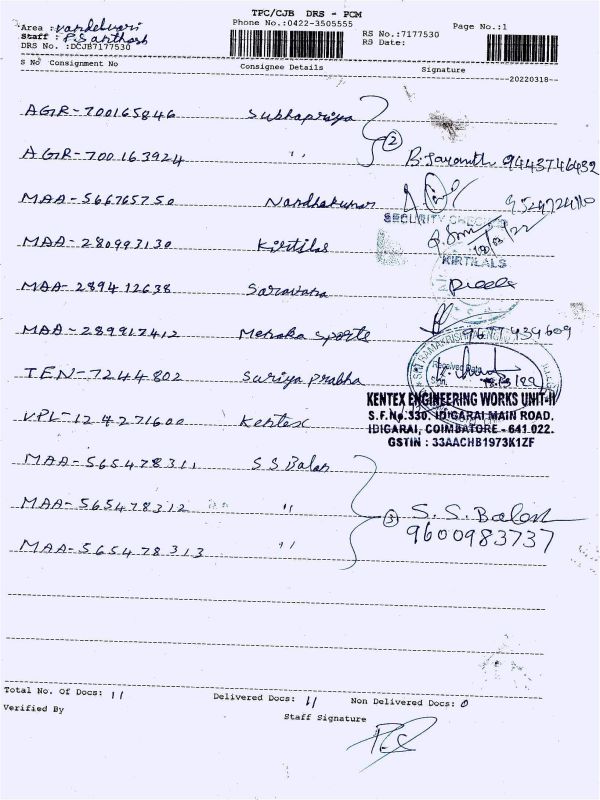 TPC/CJB DRS - PCM
Area : Vandeluari
Phone No.:0422-3505555
Page No.:1
Staff : P.Santhosh
RS No.:7177530
DRS No. :DCJB7177530
RS Date:
S No Consignment No Consignee Details Signature
20220318
AGR-700165846 Subhapriya
AGR-700163924 " 2 B.Jayanth 9443746432
MAA-566765750 Nandhakumar
SECURITY CHECKED
MAA-280993130 Kirtilas
KIRTILALS
MAA-289412638 Saravana
MAA-289917412 Menaka sports 9677439609
TEN-7244802 Suriya prabha
Received Date
Sign.
KENTEX ENGINEERING WORKS UNIT-II
VPL-124271600 Kentex
S.F.No.330, IDIGARAI MAIN ROAD,
IDIGARAI, COIMBATORE - 641 022.
GSTIN : 33AACHB1973K1ZF
MAA-565478311 S S Balan
MAA-565478312 " 3 S.S.Balan
9600983737
MAA-565478313 "
Total No. Of Docs: 11 Delivered Docs: 11 Non Delivered Docs: 0
Verified By Staff Signature
P.S